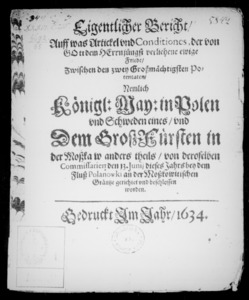 Eigentlicher Bericht/
Auff was Artickel vnd Conditiones, der von
GOtt dem HErrn jüngst verliehene ewige
Friede/
Zwischen den zwey Großmächtigsten Po-
tentaten/
Nemlich
Königl: May: in Polen
vnd Schweden eines/ vnd
Dem Groß Fürsten in
der Moßkaw anders theils/ von deroselben
Commissarien den 15. Junij dieses Jahrs bey dem
Fluß Polanowki an der Moßkowitischen
Gräntze gerichtet vnd beschlossen
worden.
Gedruckt Im Jahr/ 1634.